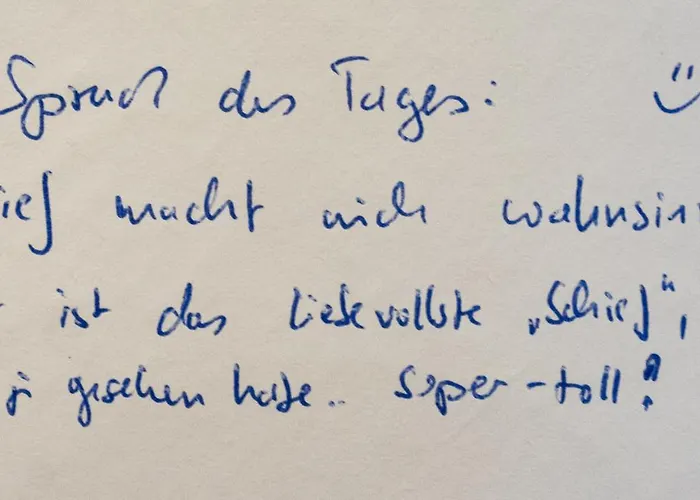 Spruch des Tages:
macht mich wahnsin
ist das liebevollste „Schief",
je gesehen habe.. Super-toll!